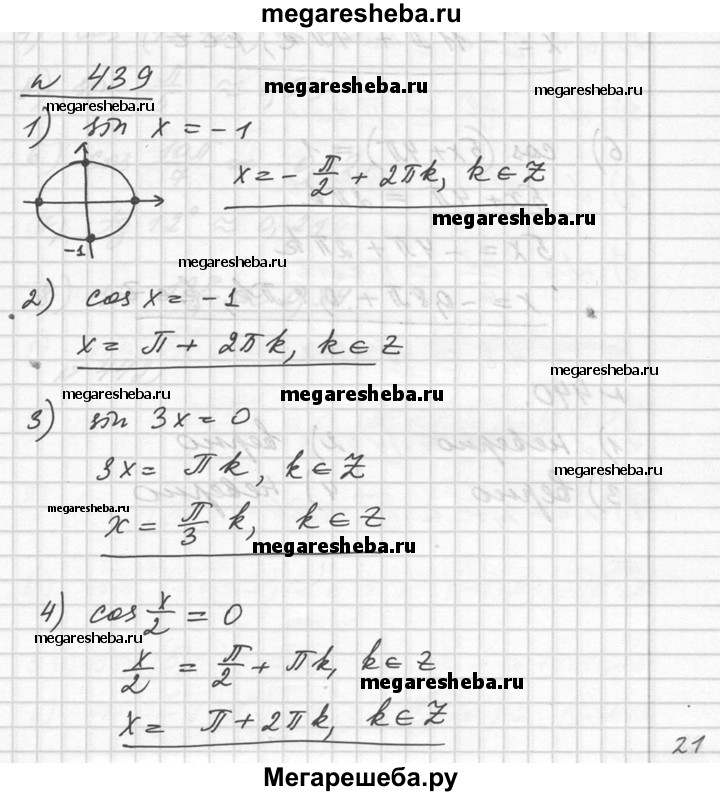 megaresheba.ru
№ 439
megaresheba.ru
megaresheba.ru
megaresheba.ru
1) sin x = -1
x = - π/2 + 2πk, k ∈ Z
megaresheba.ru
-1
megaresheba.ru
2) cos x = -1
x = π + 2πk, k ∈ Z
megaresheba.ru
megaresheba.ru
megaresheba.ru
3) sin 3x = 0
3x = πk, k ∈ Z
megaresheba.ru
megaresheba.ru
x = π/3 k, k ∈ Z
megaresheba.ru
4) cos x/2 = 0
megaresheba.ru
x/2 = π/2 + πk, k ∈ Z
megaresheba.ru
x = π + 2πk, k ∈ Z
21
Мегарешеба.ру